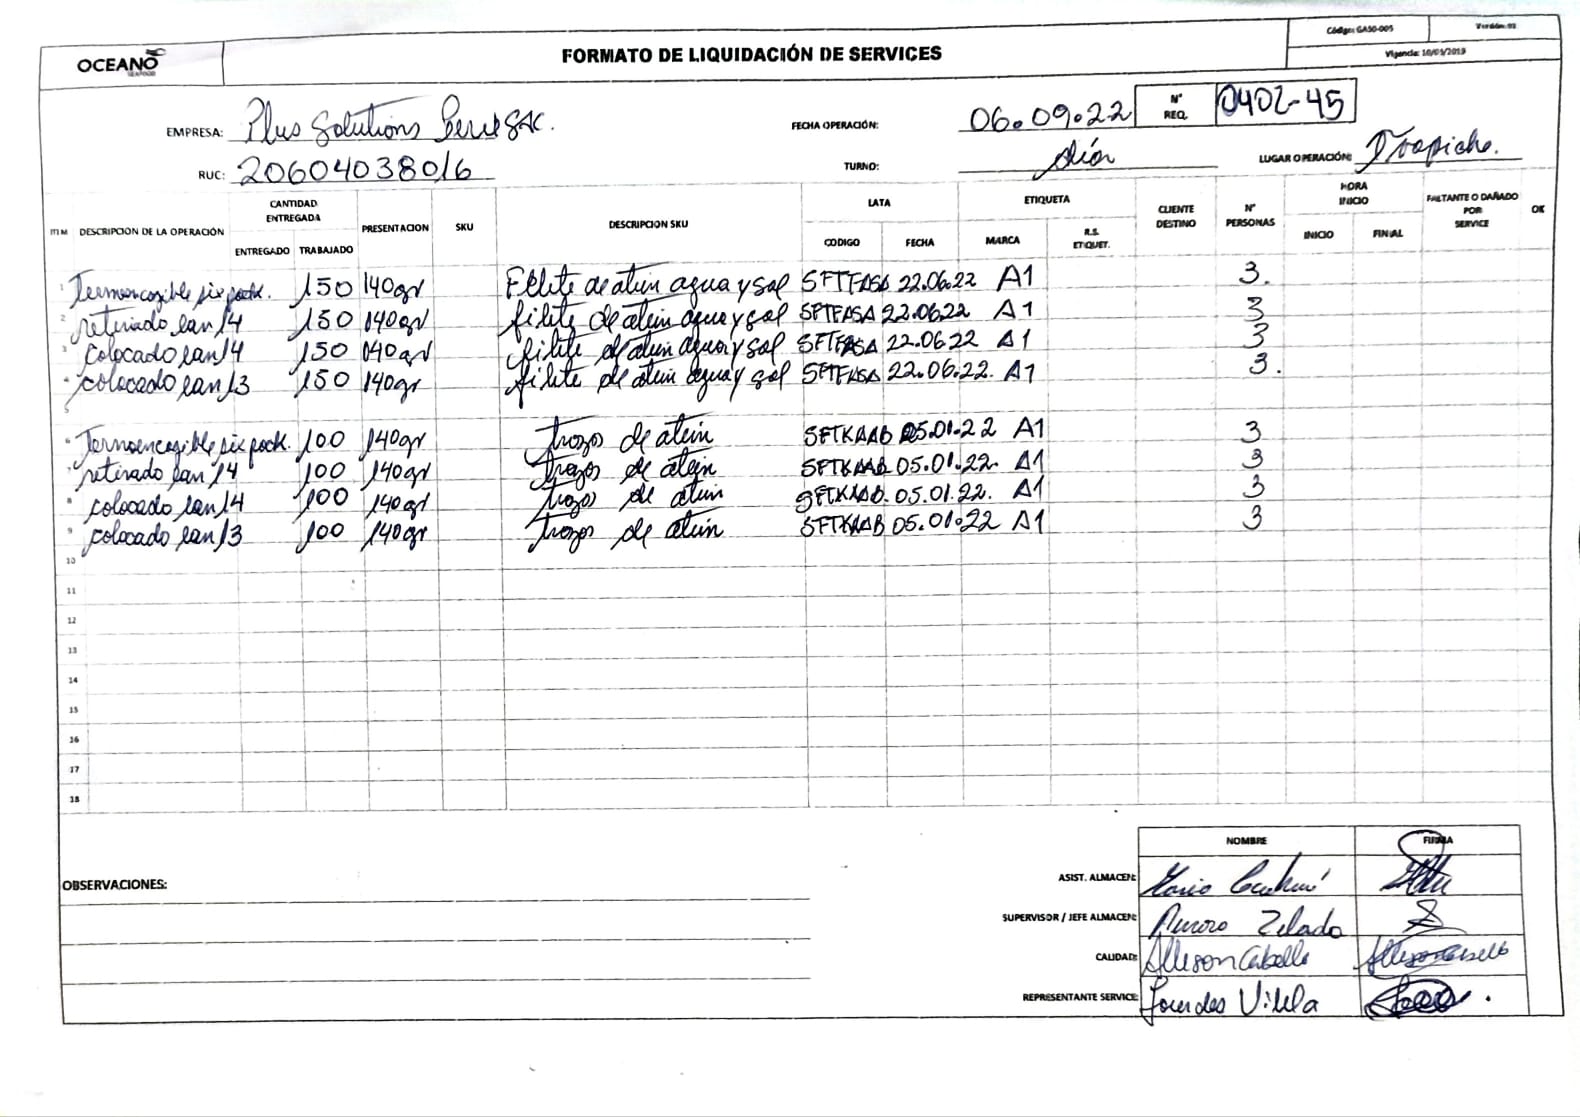 OCEANO
SEAFOOD
FORMATO DE LIQUIDACIÓN DE SERVICES
Código: GASO-005 Versión: 02
Vigencia: 10/05/2019
EMPRESA: Plus Solutions Perú SAC.
FECHA OPERACIÓN: 06.09.22
N° REQ. 0402-45
RUC: 20604038016
TURNO: día
LUGAR OPERACIÓN: Trapiche.
ITEM DESCRIPCION DE LA OPERACIÓN CANTIDAD ENTREGADA PRESENTACION SKU DESCRIPCION SKU LATA ETIQUETA CLIENTE DESTINO N° PERSONAS HORA INICIO FALTANTE O DAÑADO POR SERVICE OK
ENTREGADO TRABAJADO CODIGO FECHA MARCA R.S. ETIQUET. INICIO FINAL
1 Termoencogible six pack. 150 140gr Filete de atún agua y sal SFTFASA 22.06.22 A1 3.
2 retirado ean 14 150 140gr filete de atún agua y sal SFTFASA 22.06.22 A1 3
3 colocado ean 14 150 140gr filete de atún agua y sal SFTFASA 22.06.22 A1 3
4 colocado ean 13 150 140gr filete de atún agua y sal SFTFASA 22.06.22. A1 3.
5
6 Termoencogible six pack. 100 140gr trozos de atún SFTKAAB 05.01.22 A1 3
7 retirado ean 14 100 140gr trozos de atún SFTKAAB 05.01.22. A1 3
8 colocado ean 14 100 140gr trozos de atún SFTKAAB. 05.01.22. A1 3
9 colocado ean 13 100 140gr trozos de atún SFTKAAB 05.01.22 A1 3
10
11
12
13
14
15
16
17
18
NOMBRE FIRMA
OBSERVACIONES:
ASIST. ALMACEN: Mario
SUPERVISOR / JEFE ALMACEN: Aurora Zelada
CALIDAD: Allison Cabello
REPRESENTANTE SERVICE: Lourdes Vilela